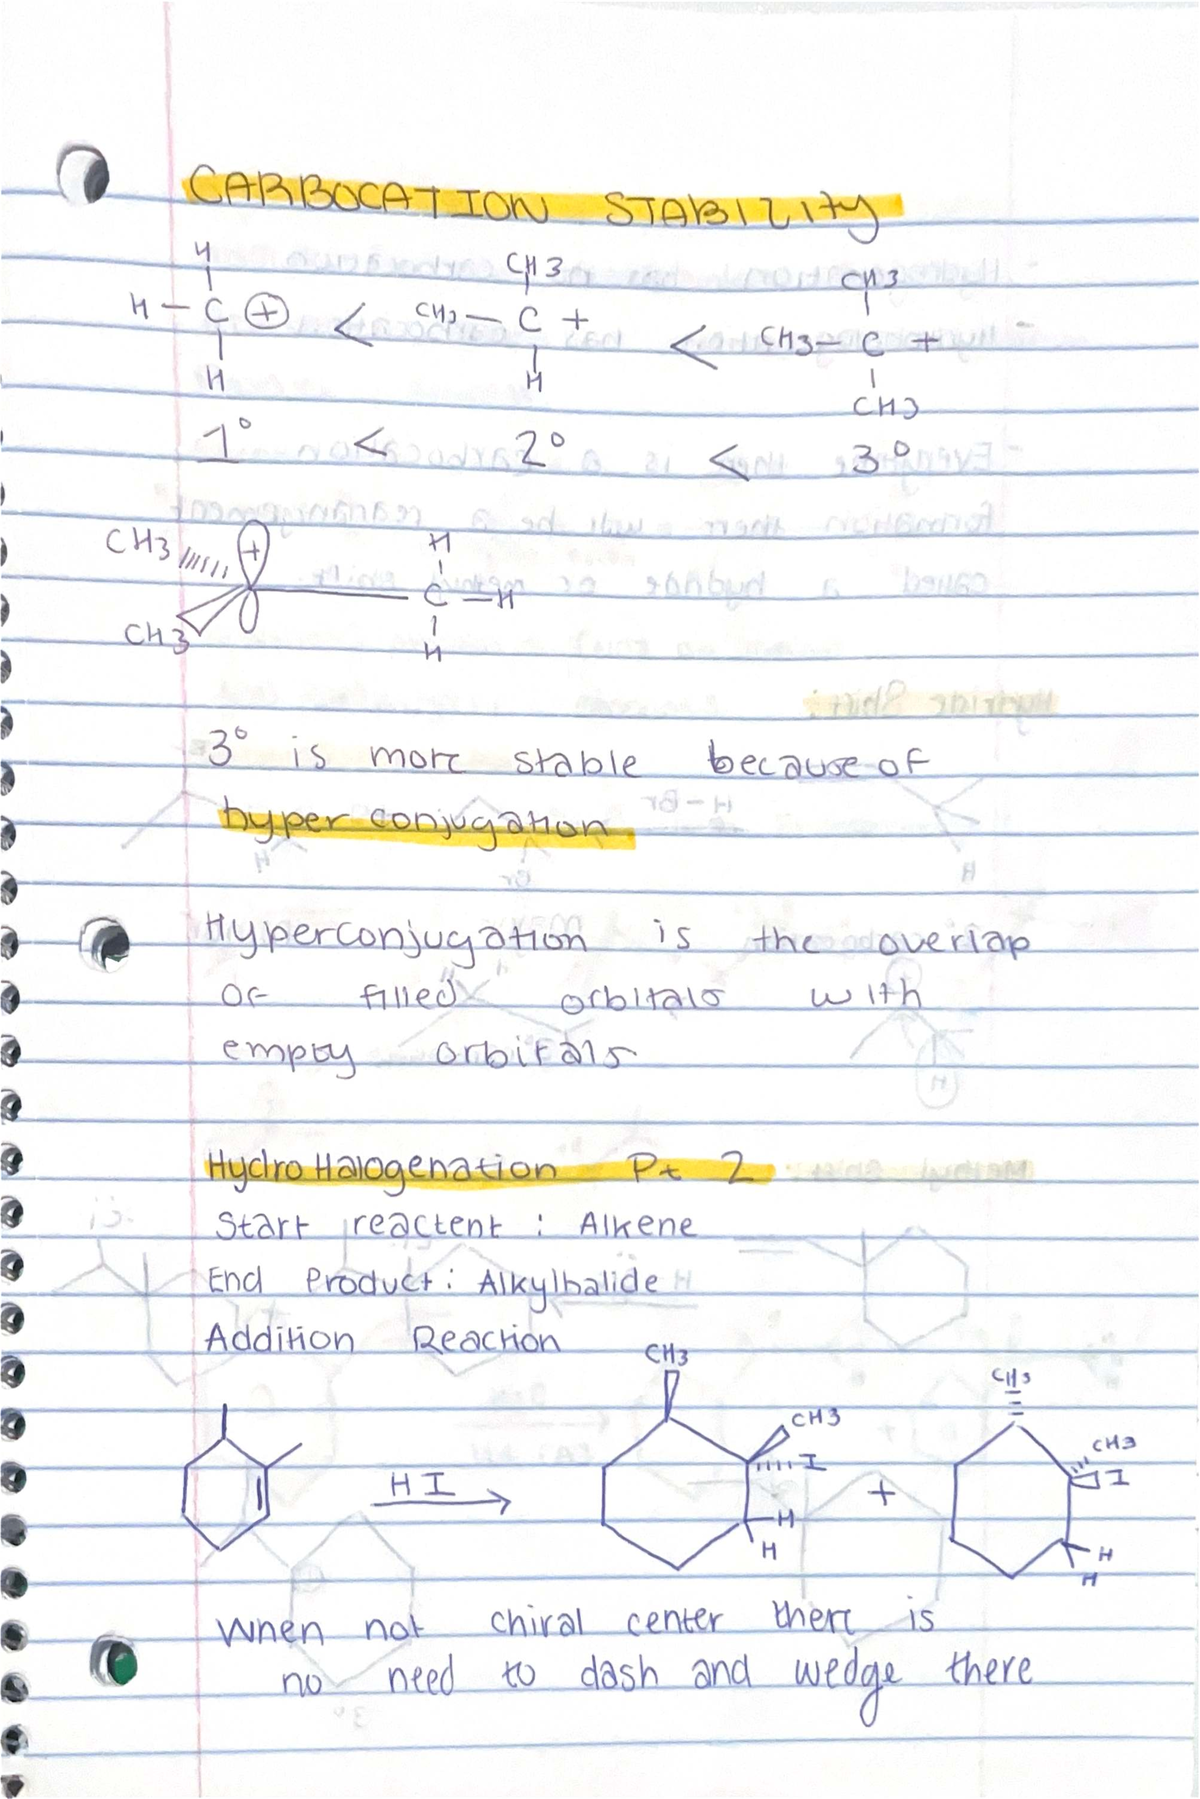 CARBOCATION STABILITY
H CH3 CH3
H - C + < CH3 - C + < CH3 - C +
H H CH3
1° < 2° < 3°
CH3 + H
C - H
CH3 H
3° is more stable because of
hyper conjugation
Hyperconjugation is the overlap
of filled orbitals with
empty orbitals
Hydro Halogenation Pt 2
Start reactent : Alkene
End Product : Alkylhalide
Addition Reaction
CH3 CH3
CH3 CH3
HI I + I
H H
H H
When not chiral center there is
no need to dash and wedge there